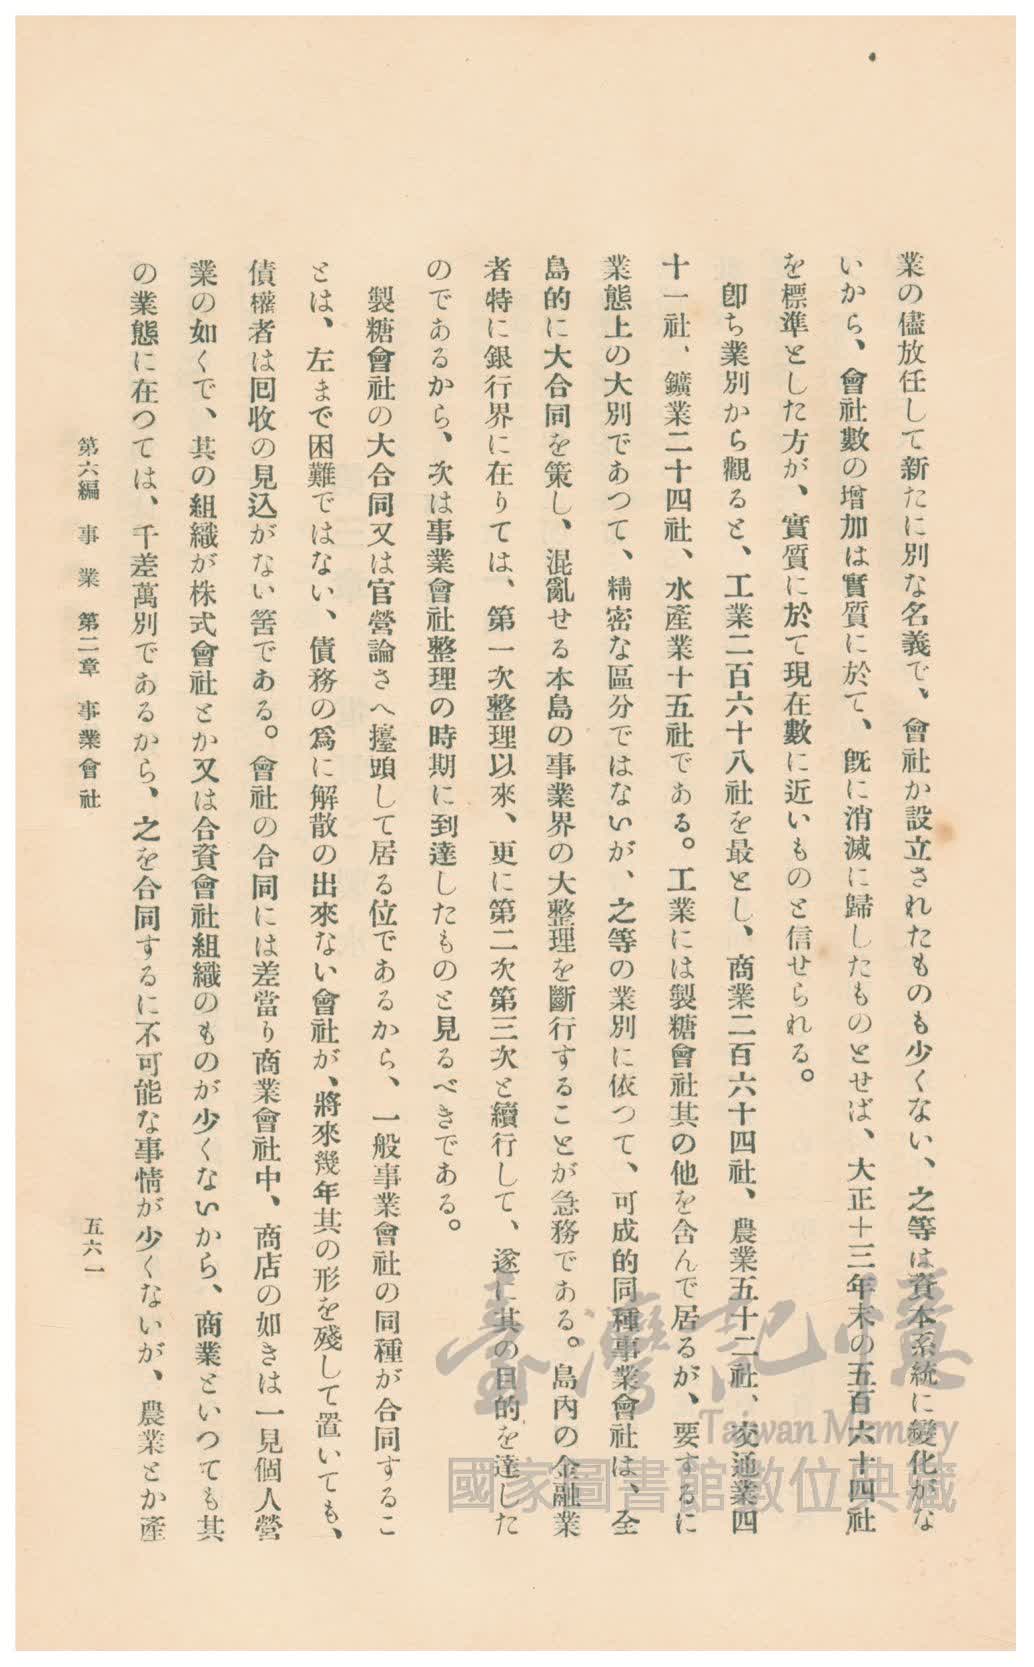 業の儘放任して新たに別な名義で、會社か設立されたものも少くない、之等は資本系統に變化がな
いから、會社數の增加は實質に於て、既に消滅に歸したものとせば、大正十三年末の五百六十四社
を標準とした方が、實質に於て現在數に近いものと信せられる。
卽ち業別から觀ると、工業二百六十八社を最とし、商業二百六十四社、農業五十二社、交通業四
十一社、鑛業二十四社、水產業十五社である。工業には製糖會社其の他を含んで居るが、要するに
業態上の大別であつて、精密な區分ではないが、之等の業別に依つて、可成的同種事業會社は、全
島的に大合同を策し、混亂せる本島の事業界の大整理を斷行することが急務である。島內の金融業
者特に銀行界に在りては、第一次整理以來、更に第二次第三次と續行して、遂に其の目的を達した
のであるから、次は事業會社整理の時期に到達したものと見るべきである。
製糖會社の大合同又は官營論さへ擡頭して居る位であるから、一般事業會社の同種が合同するこ
とは、左まで困難ではない、債務の爲に解散の出來ない會社が、將來幾年其の形を殘して置いても、
債權者は囘收の見込がない筈である。會社の合同には差當り商業會社中、商店の如きは一見個人營
業の如くで、其の組織が株式會社とか又は合資會社組織のものが少くないから、商業といつても其
の業態に在つては、千差萬別であるから、之を合同するに不可能な事情が少くないが、農業とか產
第六編 事業 第二章 事業會社
五六一
臺灣記憶
Taiwan Memory
國家圖書館數位典藏